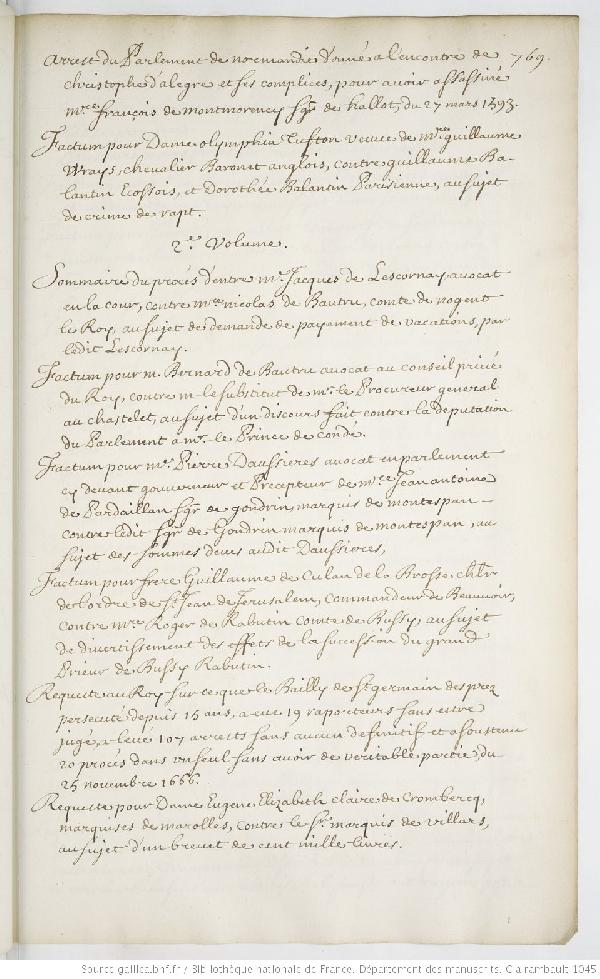 arrest du Parlement de normandie donné a lencontre de 769.
christophe d'alegre et ses complices, pour avoir assassiné
mre. françois de montmorency sgr de hallot, du 27 mars 1593.
Factum pour Dame olymphia Tufton veuve de mre guillaume
Wrays, chevalier Baronet anglois, contre guillaume Ba-
lantin Ecossois, et Dorothée Balantin Parisienne, au sujet
de crime de rapt.
2e. Volume.
Sommaire du procés d'entre me Jacques de Lescornay avocat
en la cour, contre mre nicolas de Bautru, comte de nogent
le Roy, au sujet de demande de payement de vacations, par
ledit Lescornay.
Factum pour m. Bernard de Bautru avocat au conseil privé
du Roy, contre m. le substitut de mr. le Procureur general
au chastelet, au sujet d'un discours fait contre la deputation
du Parlement a mr. le Prince de condé.
Factum pour me. Pierre Daussieres avocat en parlement
cy devant gouverneur et Precepteur de mre Jean antoine
de Pardaillan sgr. de gondrin, marquis de montespan -
contre ledit sgr de Gondrin marquis de montespan, au
sujet des sommes deues audit Daussieres,
Factum pour frere Guillaume de Culan de la Brosse, chlr
de l'ordre de St Jean de Jerusalem, Commandeur de Beauvoir,
contre mre Roger de Rabutin comte de Bussy, au sujet
de divertissement des effets de la succession du grand
Prieur de Bussy Rabutin.
Requeste au Roy sur ce que le Bailly de St germain des prez
persecuté depuis 15 ans, a eue 19 raporteurs sans estre
jugé, a levé 107 arrests sans aucun definitif et a soustenu
20 procés dans un seul sans avoir de veritable partie, du
25 novembre 1666.
Requeste pour Dame Eugene Elizabeth Claire de Crombercq,
marquises de marolles, contre le sr. marquis de Villars,
au sujet d'un brevet de cent mille livres.
Source gallica.bnf.fr / Bibliothèque nationale de France. Département des manuscrits. Clairambault 1045